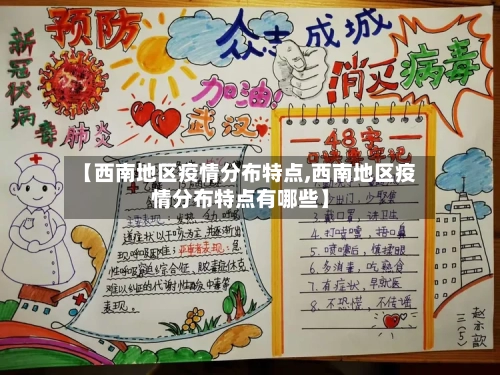 预防
众志成城
新冠状病毒肺炎
加油!
武汉
消灭病毒
48字
【西南地区疫情分布特点,西南地区疫
情分布特点有哪些】
道症状以干咳为主,并逐渐出
现呼吸困难;严重者表现:急
性呼吸窘迫综合征、脓毒症休克、
难以纠正的代谢性酸中毒等
表现。
3.戴口罩,讲卫生
4.打喷嚏,捂口鼻
5.喷嚏后,慎揉眼
6.多消毒,吃熟食
7.有症状,早就医
8.不恐慌,不传谣
赵亦歆
三(5)